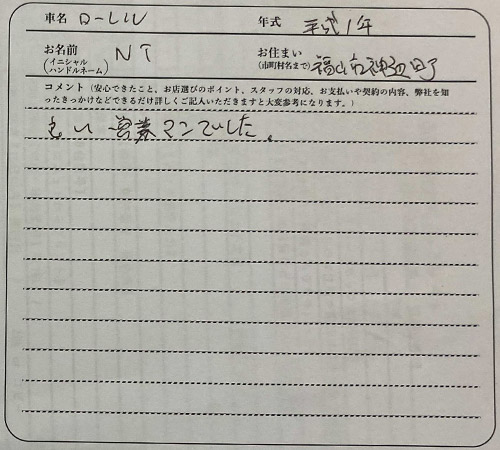 車名 ローレル 年式 平成1年
お名前 (イニシャル ハンドルネーム) NT お住まい (市町村名まで) 福山市神辺町
コメント(安心できたこと、お店選びのポイント、スタッフの対応、お支払いや契約の内容、弊社を知
ったきっかけなどできるだけ詳しくご記入いただきますと大変参考になります。)
良い営業マンでした。